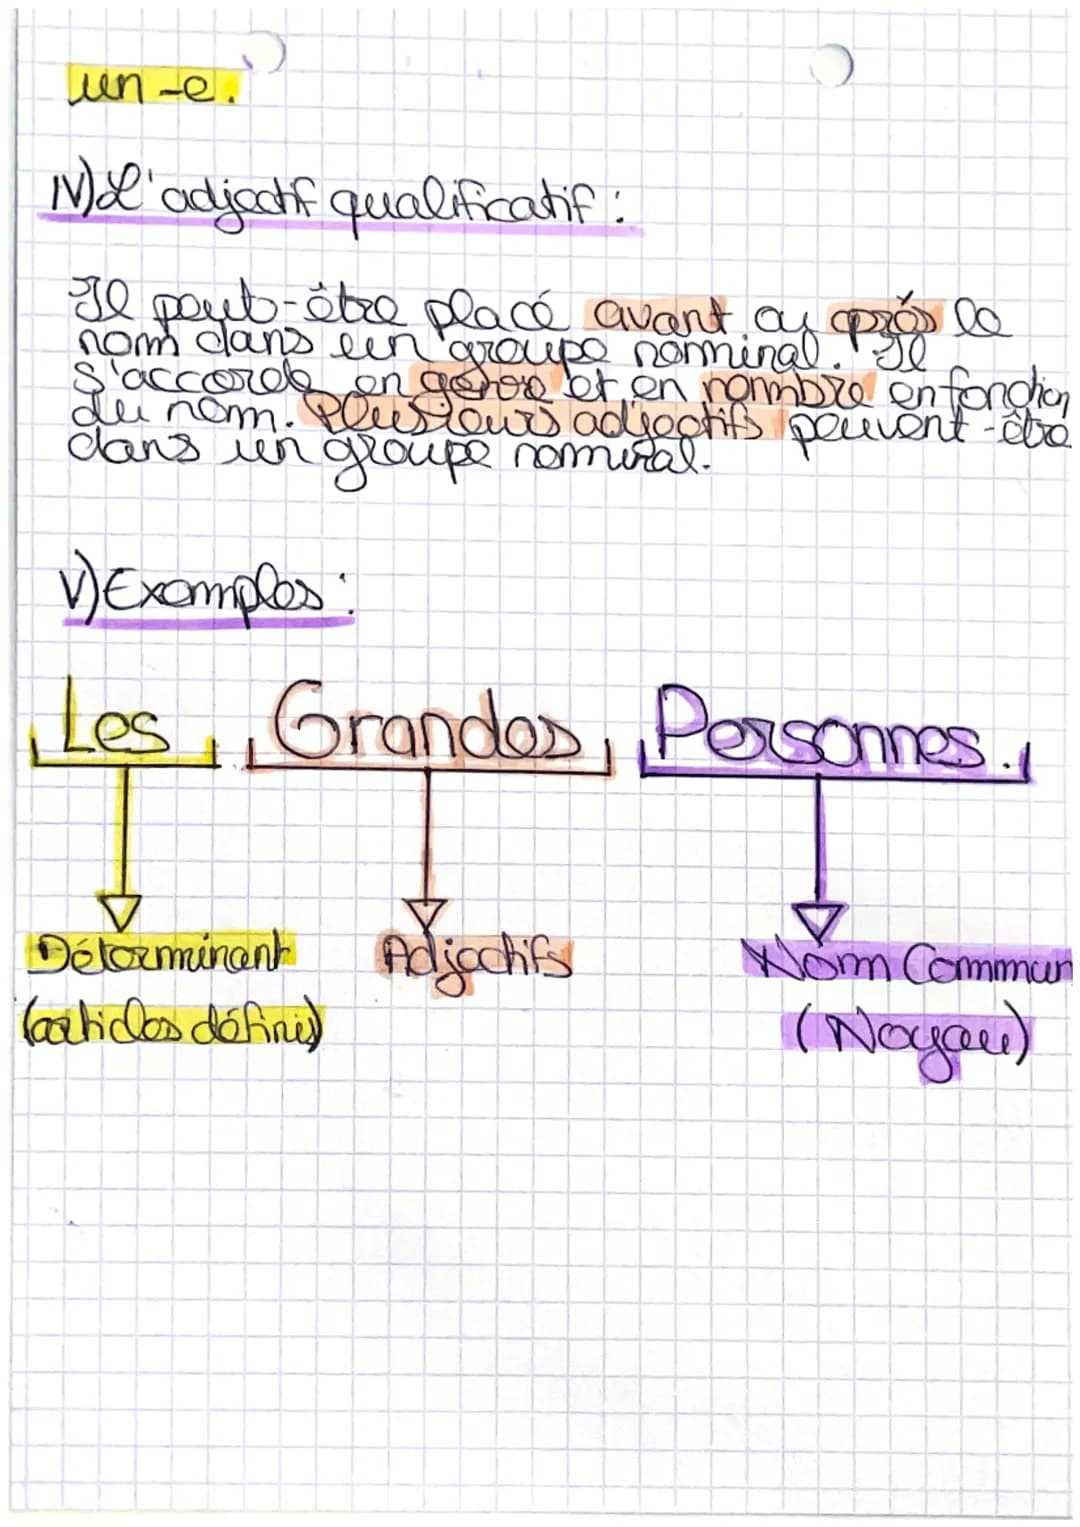 un -e.
IV) L'adjectif qualificatif :
Il peut-être placé avant ou après le
nom dans un groupe nominal. Il
s'accorde en genre et en nombre en fonction
du nom. Plusieurs adjectifs peuvent-être
dans un groupe nominal.
V) Exemples :
Les Grandes Personnes.
Déterminant Adjectifs Nom Commun
(articles définis) (Noyau)